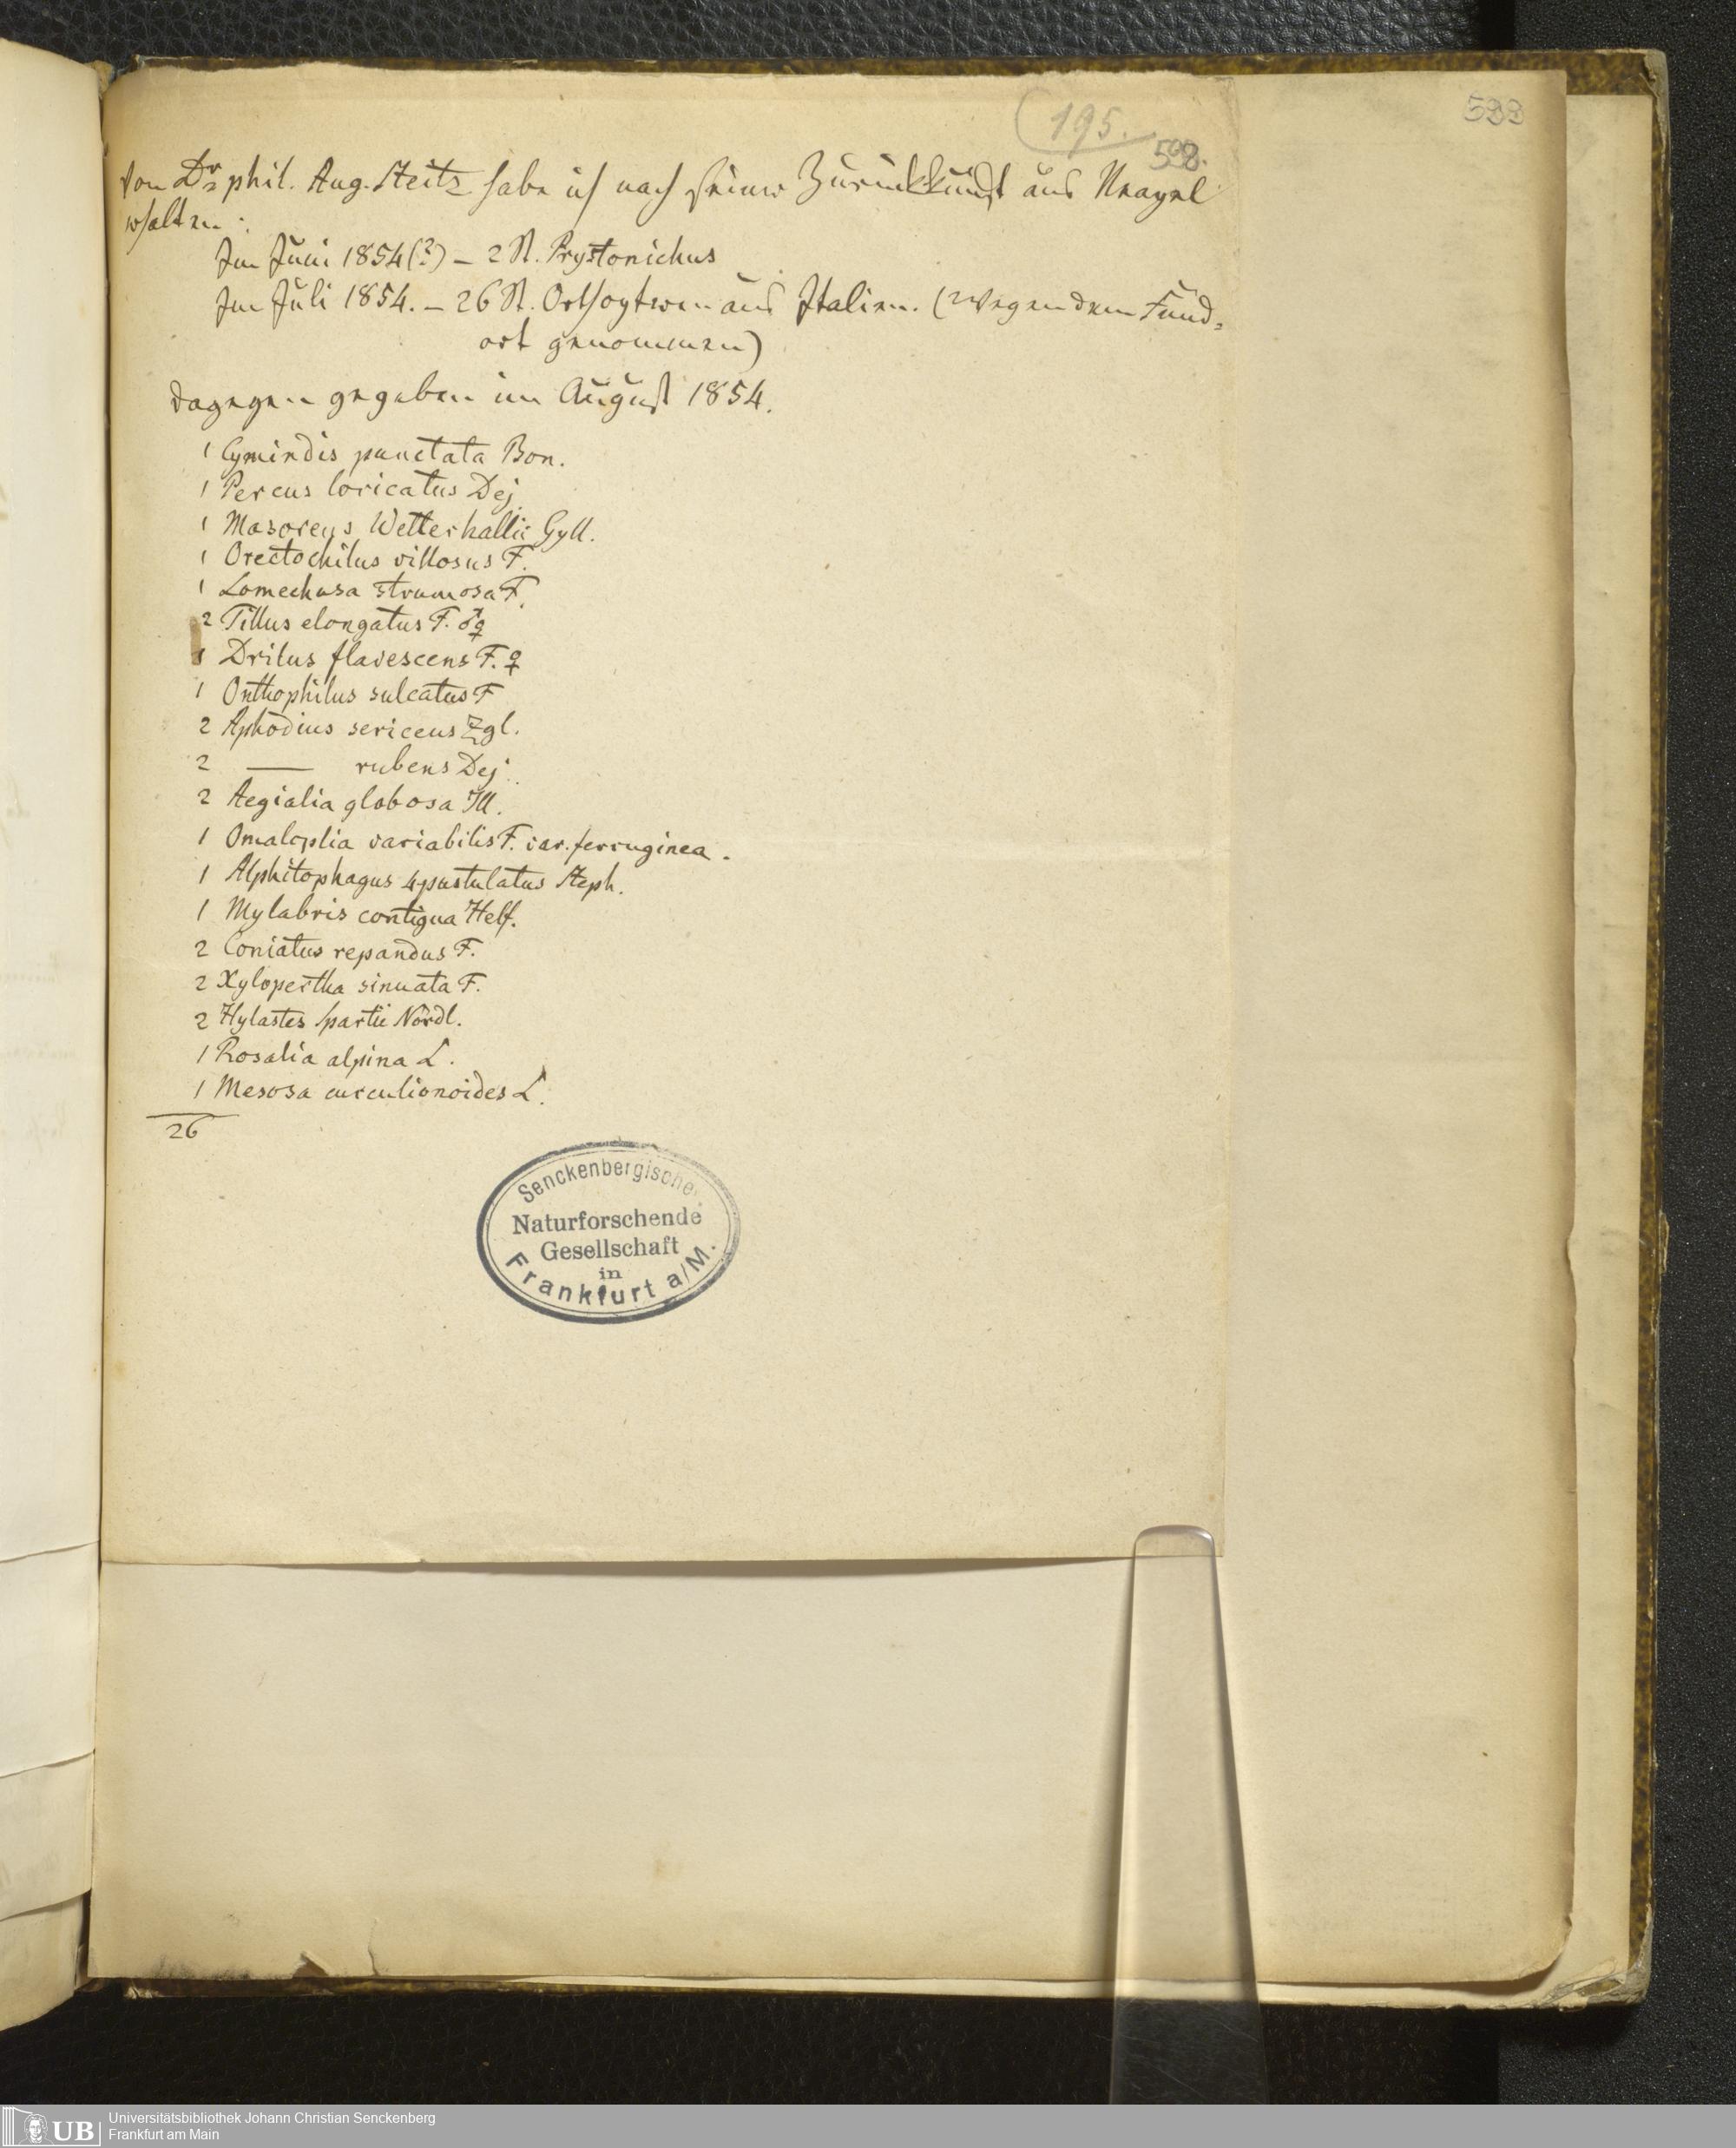 (195.
598.
599
Von Dr phil. Aug. Steitz habe ich nach seiner Zurückkunft aus Neapel
erhalten:
Im Juni 1854(?) – 2 St. Prystonichus
Im Juli 1854. – 26 St. Orthopteren aus Italien. (Wegen dem Fund-
ort genommen)
Dagegen gegeben im August 1854.
1 Cymindis punctata Bon.
1 Percus loricatus Dej.
1 Masoreus Wetterhallii Gyll.
1 Orectochilus villosus F.
1 Lomechusa strumosa F.
2 Tillus elongatus F. ♂♀
1 Drilus flavescens F. ♀
1 Onthophilus sulcatus F
2 Aphodius sericeus Zgl.
2 — rubens Dej.
2 Aegialia globosa Ill.
1 Omaloplia variabilis F. var. ferruginea.
1 Alphitophagus 4pustulatus Steph.
1 Mylabris contigua Helf.
2 Coniatus repandus F.
2 Xylopertha sinuata F.
2 Hylastes Spartii Nördl.
1 Rosalia alpina L.
1 Mesosa curculionoides L.
26
Senckenbergische
Naturforschende
Gesellschaft
in
Frankfurt a/M.
UB Universitätsbibliothek Johann Christian Senckenberg
Frankfurt am Main